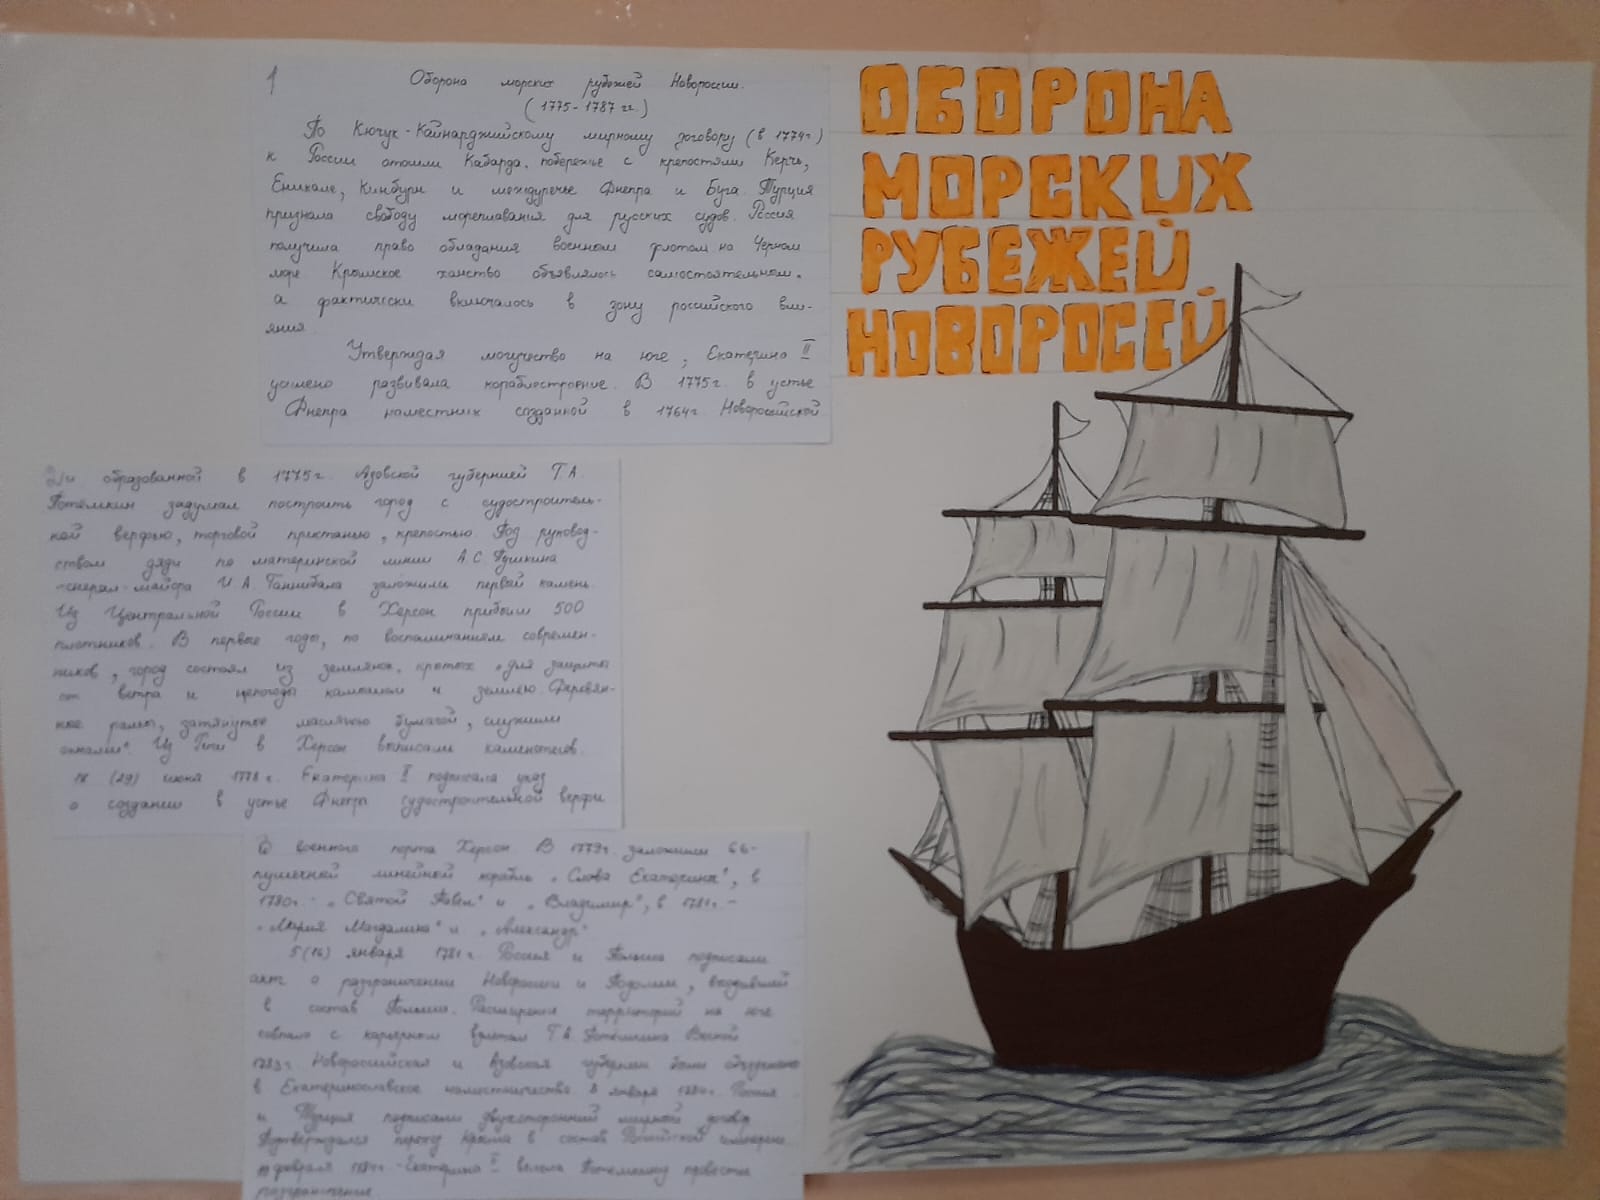 1
Оборона морских рубежей Новороссии.
(1775-1787 гг.)
По Кючук-Кайнарджийскому мирному договору (в 1774г)
к России отошли Кабарда, побережье с крепостями Керчь,
Еникале, Кинбурн и междуречье Днепра и Буга. Турция
признала свободу мореплавания для русских судов. Россия
получила право обладания военным флотом на Черном
море Крымское ханство объявлялось самостоятельным,
а фактически включалось в зону российского вли-
яния.
Утверждая могущество на юге, Екатерина II
развивала кораблестроение. В 1775г. в устье
Днепра наместник созданной в 1764г Новороссийской
ОБОРОНА
МОРСКИХ
РУБЕЖЕЙ
НОВОРОССЕЙ
2) и образованной в 1775г. Азовской губернией Г.А.
Потёмкин задумал построить город с судостроитель-
ной верфью, торговой пристанью, крепостью. Под руковод-
ством дяди по материнской линии А.С. Пушкина
генерал-майора И.А. Ганнибала заложили первый камень.
Из Центральной России в Херсон прибыли 500
плотников. В первые годы, по воспоминаниям современ-
ников, город состоял из землянок, крытых „для защиты
от ветра и непогоды камышом и землею. Деревян-
ные рамы, затянутые масляною бумагой, служили
окнами". Из в Херсон выписали каменотёсов.
18 (29) июня 1778г. Екатерина II подписала указ
о создании в устье Днепра судостроительной верфи
военного порта Херсон. В 1779г. заложили 66-
пушечной линейной корабль „Слава Екатерины", в
1780г. - „Святой Павел" и „Владимир", в 1781г. -
„Мария Магдалина" и „Александр"
5(16) января 1781г. Россия и Польша подписали
акт о разграничении Новороссии и Подолии, входившей
в состав Польши. Расширение территорий на юге
совпало с карьерным взлётом Г.А. Потёмкина. Весной
1783г. Новороссийская и Азовская губернии были объединены
в Екатеринославское наместничество. 8 января 1784г. Россия
и Турция подписали двухсторонний мирной договор
Подтверждался переход Крыма в состав Российской империи.
февраля 1784г. Екатерина II велела Потёмкину провести
разграничение.